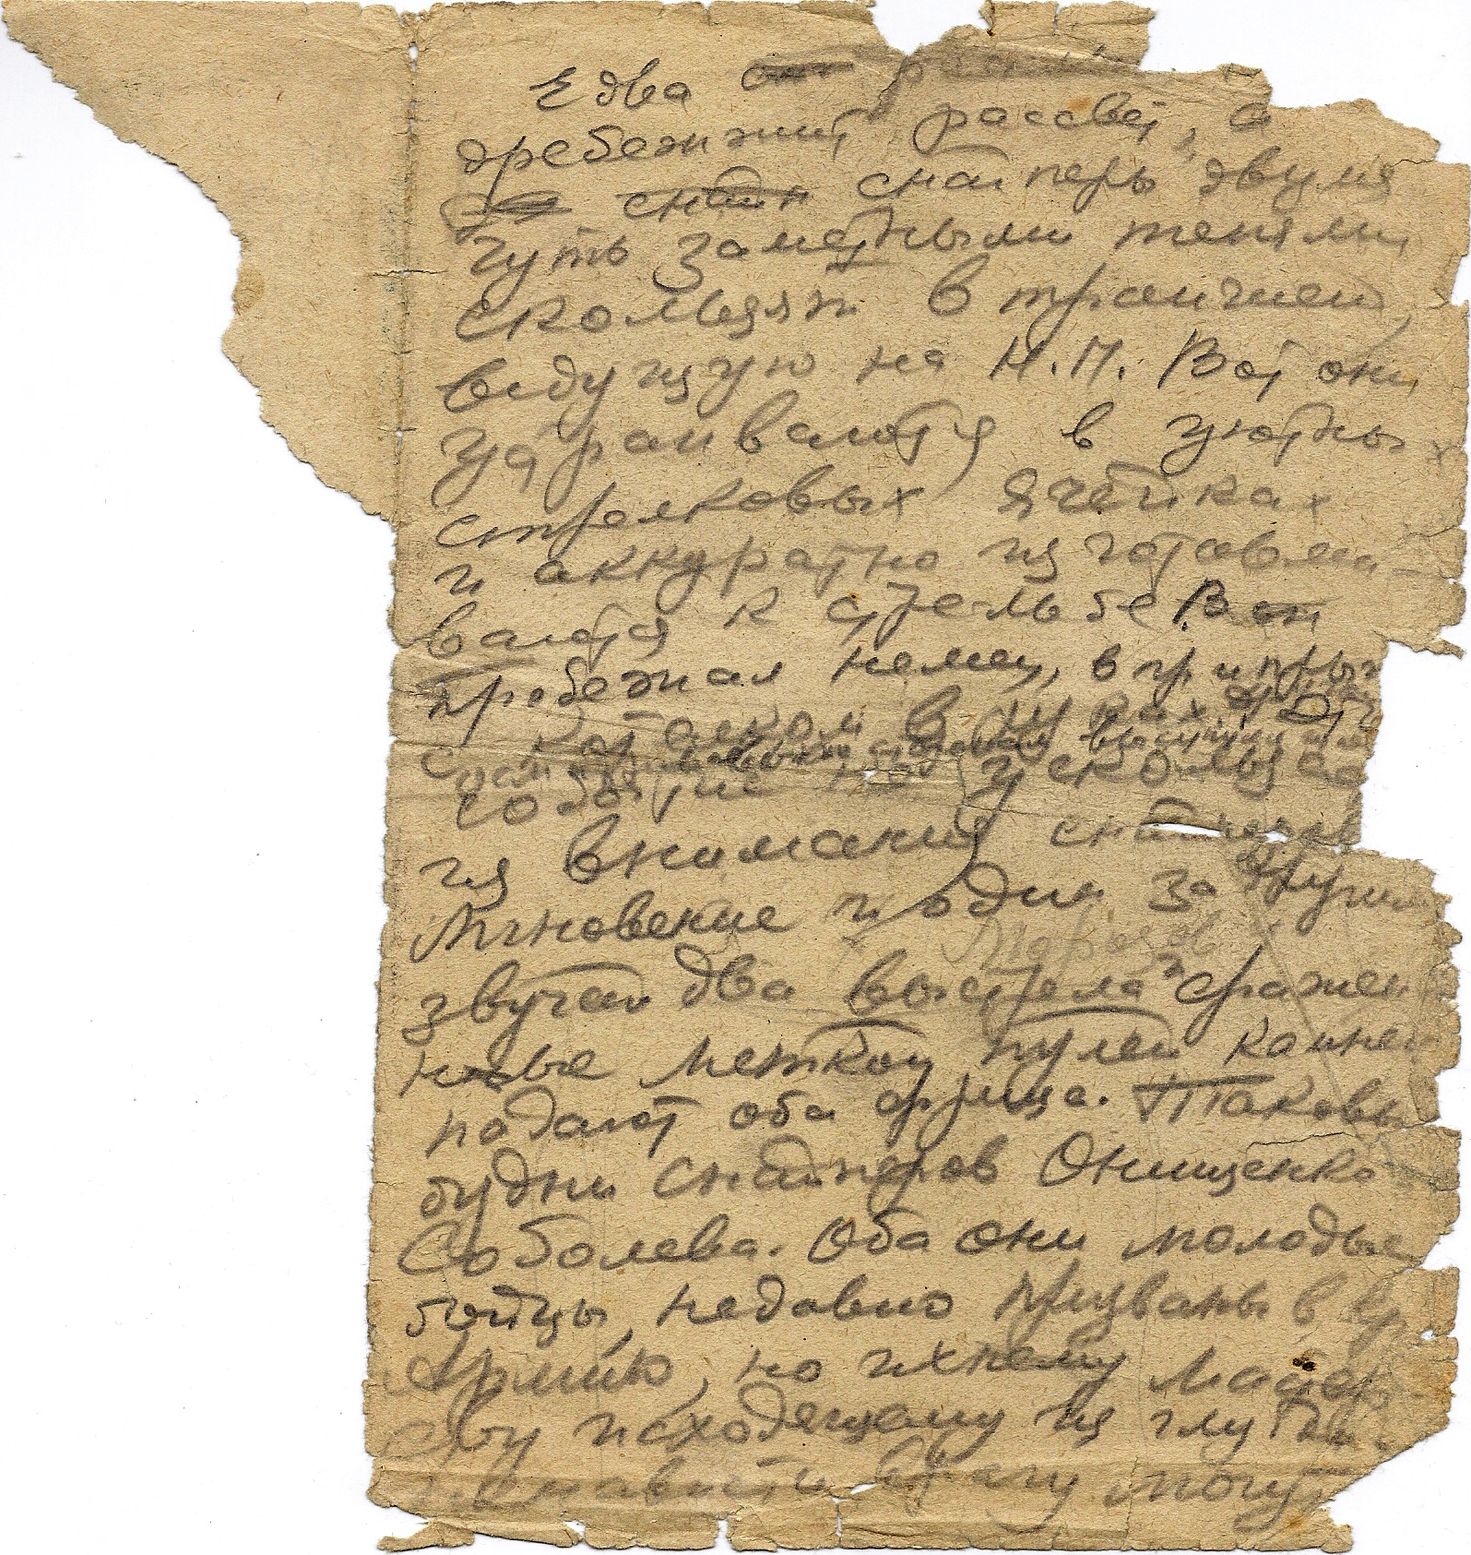 Едва
дребезжит рассвет, а
снайперы двумя
чуть заметными тенями
скользят в траншеи,
ведущую на Н.П. Вот они
устраиваются в уютны
стрелковых ячейках
и аккуратно изготавли-
ваются к стрельбе. Вон
пробежал немец, вприпрыж
с котелком в руках.
событие не ускольза
из внимания снайперов
Мгновение и один за другим
Морозов
звучат два выстрела и сражен
ные меткой пулей
падают оба фрица. Таковы
будни снайперов Онищенко
Соболева. Оба они молодые
бойцы, недавно призваны в Кр
Армию, но ихнему мастер
ству исходящему из глуби
ненависти к врагу могут